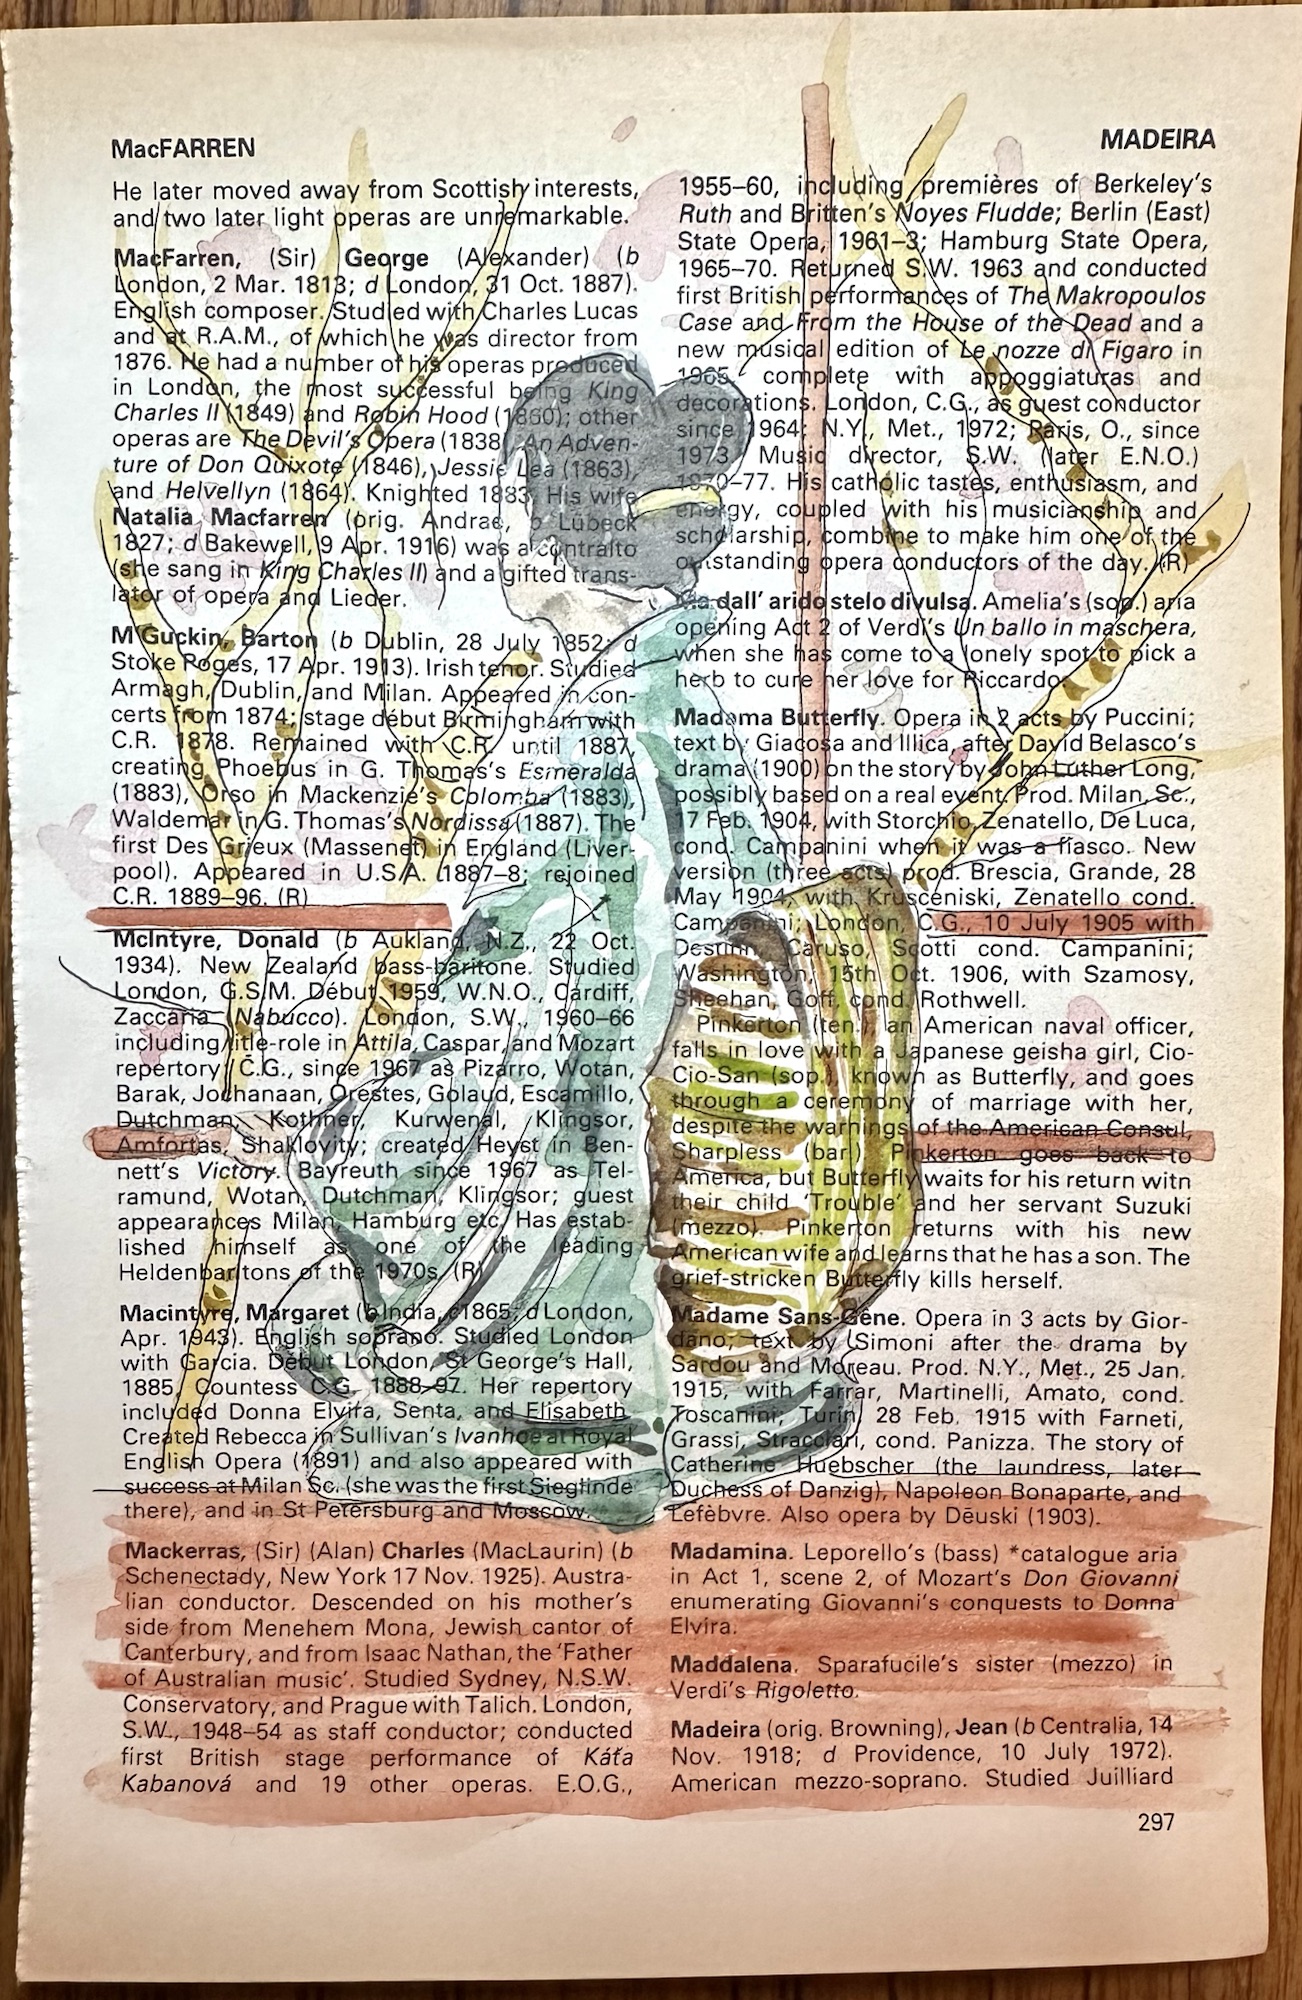 MacFARREN
MADEIRA
He later moved away from Scottish interests,
and two later light operas are unremarkable.
MacFarren, (Sir) George (Alexander) (b
London, 2 Mar. 1813; d London, 31 Oct. 1887).
English composer. Studied with Charles Lucas
and at R.A.M., of which he was director from
1876. He had a number of his operas produced
in London, the most successful being King
Charles II (1849) and Robin Hood (1860); other
operas are The Devil's Opera (1838), An Adven-
ture of Don Quixote (1846), Jessie Lea (1863),
and Helvellyn (1864). Knighted 1883. His wife
Natalia Macfarren (orig. Andrae, b Lübeck
1827; d Bakewell, 9 Apr. 1916) was a contralto
(she sang in King Charles II) and a gifted trans-
lator of opera and Lieder.
M'Guckin, Barton (b Dublin, 28 July 1852; d
Stoke Poges, 17 Apr. 1913). Irish tenor. Studied
Armagh, Dublin, and Milan. Appeared in con-
certs from 1874; stage début Birmingham with
C.R. 1878. Remained with C.R. until 1887,
creating Phoebus in G. Thomas's Esmeralda
(1883), Orso in Mackenzie's Colomba (1883),
Waldemar in G. Thomas's Nordissa (1887). The
first Des Grieux (Massenet) in England (Liver-
pool). Appeared in U.S.A. 1887–8; rejoined
C.R. 1889–96. (R)
McIntyre, Donald (b Aukland, N.Z., 22 Oct.
1934). New Zealand bass-baritone. Studied
London, G.S.M. Début 1959, W.N.O., Cardiff,
Zaccaria (Nabucco). London, S.W., 1960–66
including title-role in Attila, Caspar, and Mozart
repertory; C.G., since 1967 as Pizarro, Wotan,
Barak, Jochanaan, Orestes, Golaud, Escamillo,
Dutchman, Kothner, Kurwenal, Klingsor,
Amfortas, Shaklovity; created Heyst in Ben-
nett's Victory. Bayreuth since 1967 as Tel-
ramund, Wotan, Dutchman, Klingsor; guest
appearances Milan, Hamburg etc. Has estab-
lished himself as one of the leading
Heldenbaritons of the 1970s. (R)
Macintyre, Margaret (b India, c1865; d London,
Apr. 1943). English soprano. Studied London
with Garcia. Début London, St George's Hall,
1885, Countess C.G. 1888–97. Her repertory
included Donna Elvira, Senta, and Elisabeth.
Created Rebecca in Sullivan's Ivanhoe at Royal
English Opera (1891) and also appeared with
success at Milan Sc. (she was the first Sieglinde
there), and in St Petersburg and Moscow.
Mackerras, (Sir) (Alan) Charles (MacLaurin) (b
Schenectady, New York 17 Nov. 1925). Austra-
lian conductor. Descended on his mother's
side from Menehem Mona, Jewish cantor of
Canterbury, and from Isaac Nathan, the 'Father
of Australian music'. Studied Sydney, N.S.W.
Conservatory, and Prague with Talich. London,
S.W., 1948–54 as staff conductor; conducted
first British stage performance of Káťa
Kabanová and 19 other operas. E.O.G.,
1955–60, including premières of Berkeley's
Ruth and Britten's Noyes Fludde; Berlin (East)
State Opera, 1961–3; Hamburg State Opera,
1965–70. Returned S.W. 1963 and conducted
first British performances of The Makropoulos
Case and From the House of the Dead and a
new musical edition of Le nozze di Figaro in
1965, complete with appoggiaturas and
decorations. London, C.G., as guest conductor
since 1964; N.Y., Met., 1972; Paris, O., since
1973. Music director, S.W. (later E.N.O.)
1970–77. His catholic tastes, enthusiasm, and
energy, coupled with his musicianship and
scholarship, combine to make him one of the
outstanding opera conductors of the day. (R)
Ma dall' arido stelo divulsa. Amelia's (sop.) aria
opening Act 2 of Verdi's Un ballo in maschera,
when she has come to a lonely spot to pick a
herb to cure her love for Riccardo.
Madama Butterfly. Opera in 2 acts by Puccini;
text by Giacosa and Illica, after David Belasco's
drama (1900) on the story by John Luther Long,
possibly based on a real event. Prod. Milan, Sc.,
17 Feb. 1904, with Storchio, Zenatello, De Luca,
cond. Campanini when it was a fiasco. New
version (three acts) prod. Brescia, Grande, 28
May 1904, with Krusceniski, Zenatello cond.
Campanini; London, C.G., 10 July 1905 with
Destinn, Caruso, Scotti cond. Campanini;
Washington, 15th Oct. 1906, with Szamosy,
Sheehan, Goff, cond. Rothwell.
Pinkerton (ten.), an American naval officer,
falls in love with a Japanese geisha girl, Cio-
Cio-San (sop.), known as Butterfly, and goes
through a ceremony of marriage with her,
despite the warnings of the American Consul,
Sharpless (bar.). Pinkerton goes back to
America, but Butterfly waits for his return with
their child 'Trouble' and her servant Suzuki
(mezzo). Pinkerton returns with his new
American wife and learns that he has a son. The
grief-stricken Butterfly kills herself.
Madame Sans-Gêne. Opera in 3 acts by Gior-
dano; text by Simoni after the drama by
Sardou and Moreau. Prod. N.Y., Met., 25 Jan.
1915, with Farrar, Martinelli, Amato, cond.
Toscanini; Turin, 28 Feb. 1915 with Farneti,
Grassi, Stracciari, cond. Panizza. The story of
Catherine Huebscher (the laundress, later
Duchess of Danzig), Napoleon Bonaparte, and
Lefèbvre. Also opera by Dēuski (1903).
Madamina. Leporello's (bass) *catalogue aria
in Act 1, scene 2, of Mozart's Don Giovanni
enumerating Giovanni's conquests to Donna
Elvira.
Maddalena. Sparafucile's sister (mezzo) in
Verdi's Rigoletto.
Madeira (orig. Browning), Jean (b Centralia, 14
Nov. 1918; d Providence, 10 July 1972).
American mezzo-soprano. Studied Juilliard
297